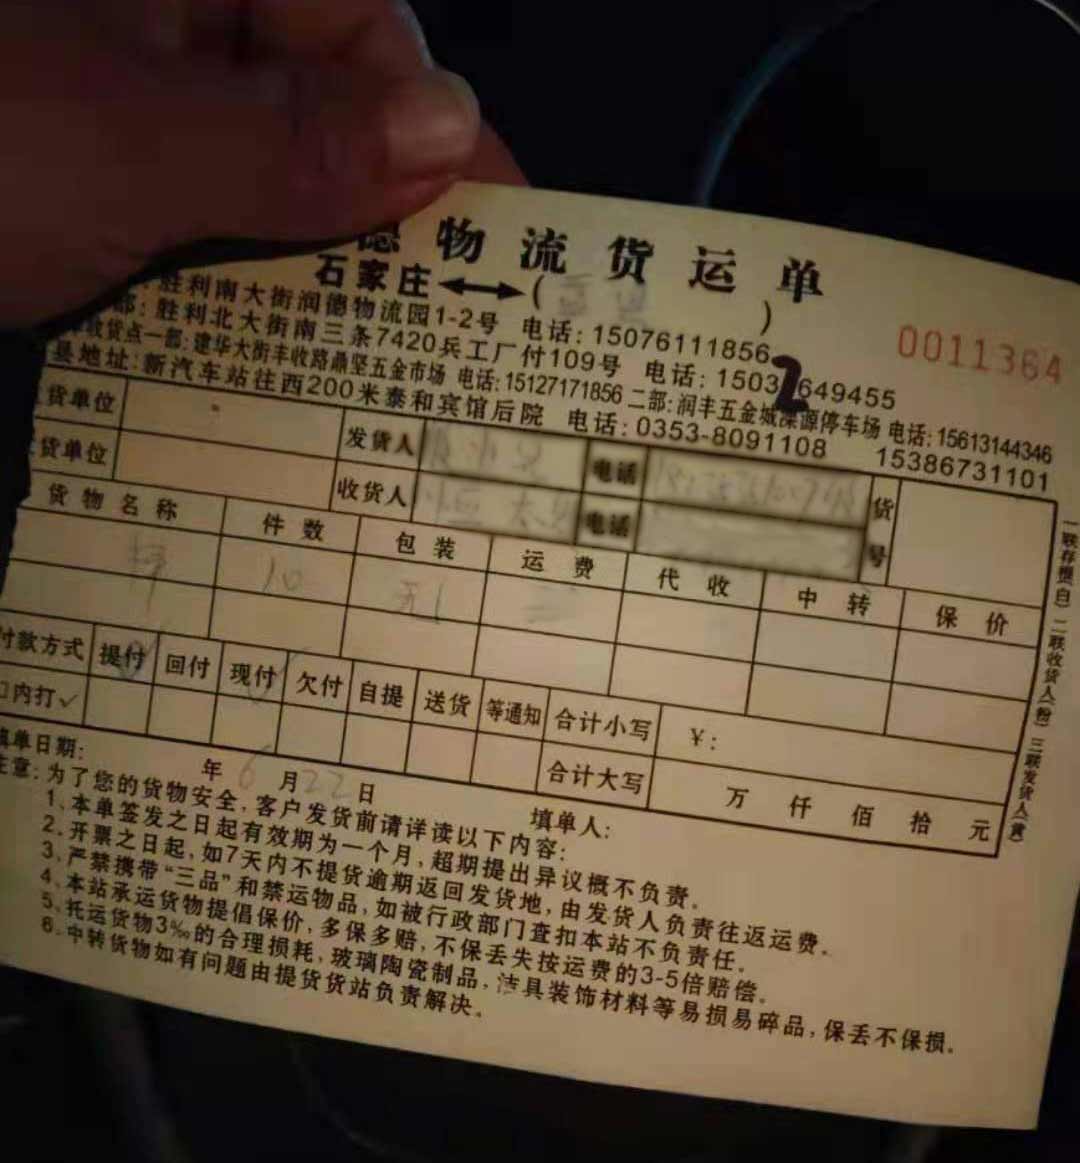 德物流货运单
石家庄←→( )
0011364
:胜利南大街润德物流园1-2号 电话:15076111856
部:胜利北大街南三条7420兵工厂付109号 电话:15032649455
货点一部:建华大街丰收路鼎坚五金市场 电话:15127171856 二部:润丰五金城深源停车场 电话:15613144346
县地址:新汽车站往西200米泰和宾馆后院 电话:0353-8091108 15386731101
货单位 发货人 电话 货号
货单位 收货人 电话
货物名称 件数 包装 运费 代收 中转 保价
10 无
付款方式 提付 回付 现付 欠付 自提 送货 等通知 合计小写 ¥:
口内打✓ 合计大写 万 仟 佰 拾 元
填单日期: 年6月22日 填单人:
注意:为了您的货物安全,客户发货前请详读以下内容:
1、本单签发之日起有效期为一个月,超期提出异议概不负责。
2、开票之日起,如7天内不提货逾期返回发货地,由发货人负责往返运费。
3、严禁携带“三品”和禁运物品,如被行政部门查扣本站不负责任。
4、本站承运货物提倡保价,多保多赔,不保丢失按运费的3-5倍赔偿。
5、托运货物3‰的合理损耗,玻璃陶瓷制品,洁具装饰材料等易损易碎品,保丢不保损。
6、中转货物如有问题由提货货站负责解决。
一联存根(白) 二联收货人(粉) 三联发货人(黄)